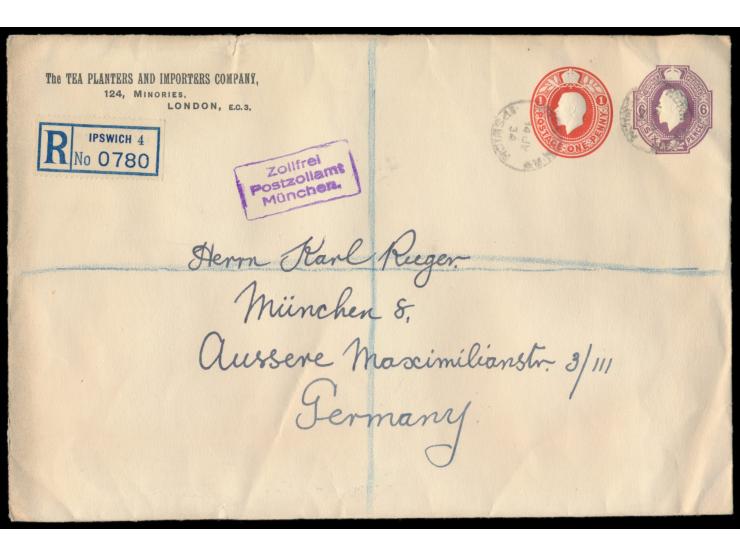 The TEA PLANTERS AND IMPORTERS COMPANY,
124, MINORIES,
LONDON, E.C.3.
R
IPSWICH 4
No 0780
Zollfrei
Postzollamt
München.
1 1
POSTAGE ONE PENNY
6 6
SIX PENCE
14 JY
34
IPSWICH
Herrn Karl Rieger.
München 8,
Aussere Maximilianstr. 3/III
Germany